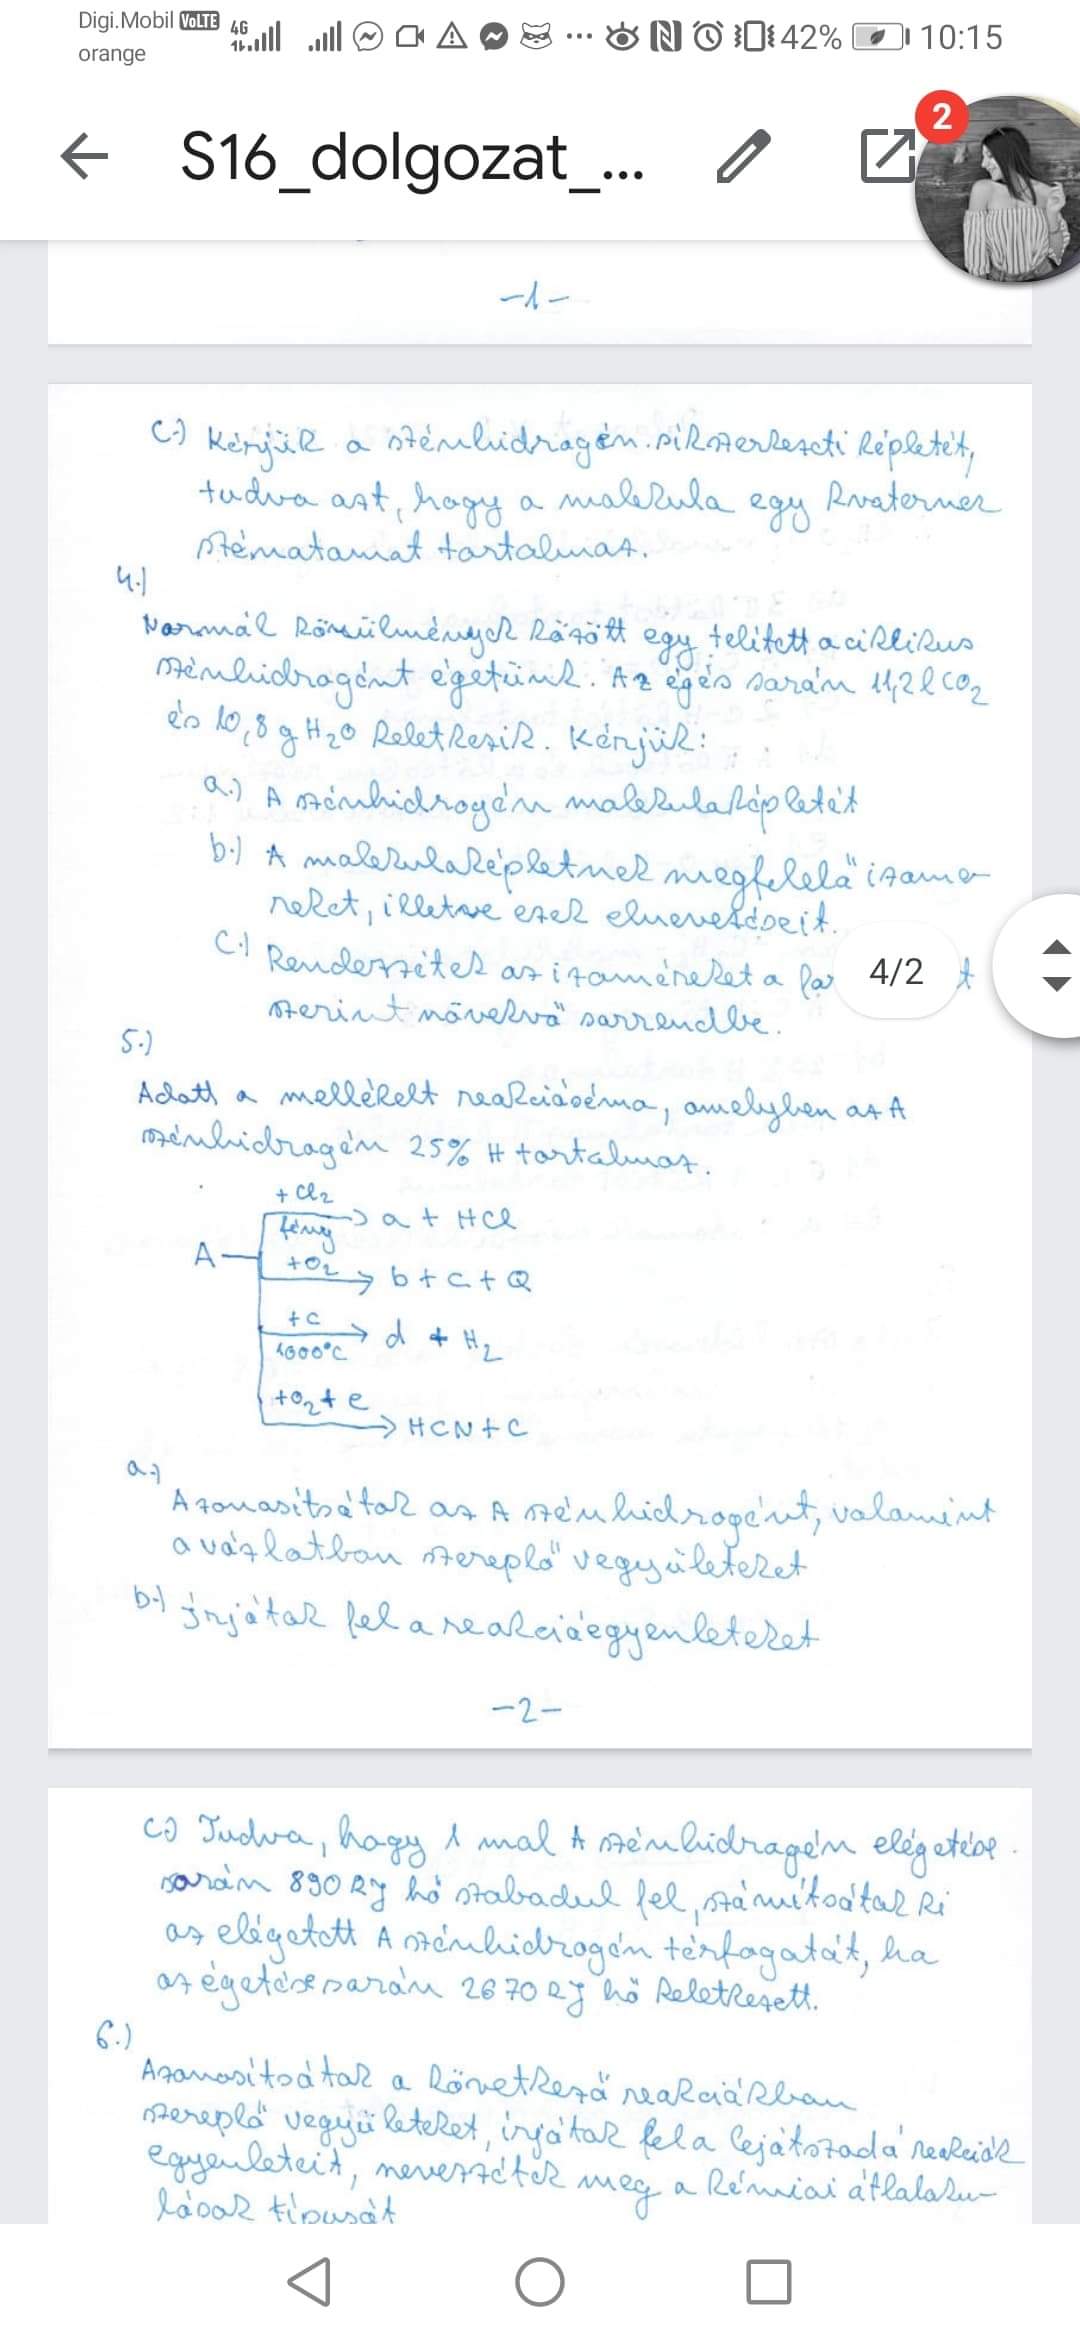 Digi.Mobil VoLTE 4G
orange
42% 10:15
S16_dolgozat_...
2
-1-
c.) Kérjük a szénhidrogén síkszerkezeti képletét,
tudva azt, hogy a molekula egy kvaterner
szénatomot tartalmaz.
4.)
Normál körülmények között egy telített aciklikus
szénhidrogént égetünk. Az égés során 11,2 l CO2
és 10,8 g H2O keletkezik. Kérjük:
a.) A szénhidrogén molekulaképletét
b.) A molekulaképletnek megfelelő izome-
reket, illetve ezek elnevezéseit.
c.) Rendezzétek az izoméreket a
4/2
szerint növekvő sorrendbe.
5.)
Adott a mellékelt reakcióséma, amelyben az A
szénhidrogén 25% H tartalmaz.
+ Cl2
fény → a + HCl
A
+O2 → b + c + Q
+C
1000°C → d + H2
+O2 + e → HCN + C
a.)
Azonosítsátok az A szénhidrogént, valamint
a vázlatban szereplő vegyületeket
b.) Írjátok fel a reakcióegyenleteket
-2-
c.) Tudva, hogy 1 mol A szénhidrogén elégetése
során 890 kJ hő szabadul fel, számítsátok ki
az elégetett A szénhidrogén térfogatát, ha
az égetése során 2670 kJ hő keletkezett.
6.)
Azonosítsátok a következő reakciókban
szereplő vegyületeket, írjátok fel a lejátszódó reakciók
egyenleteit, nevezzétek meg a kémiai átalaku-
lások típusát